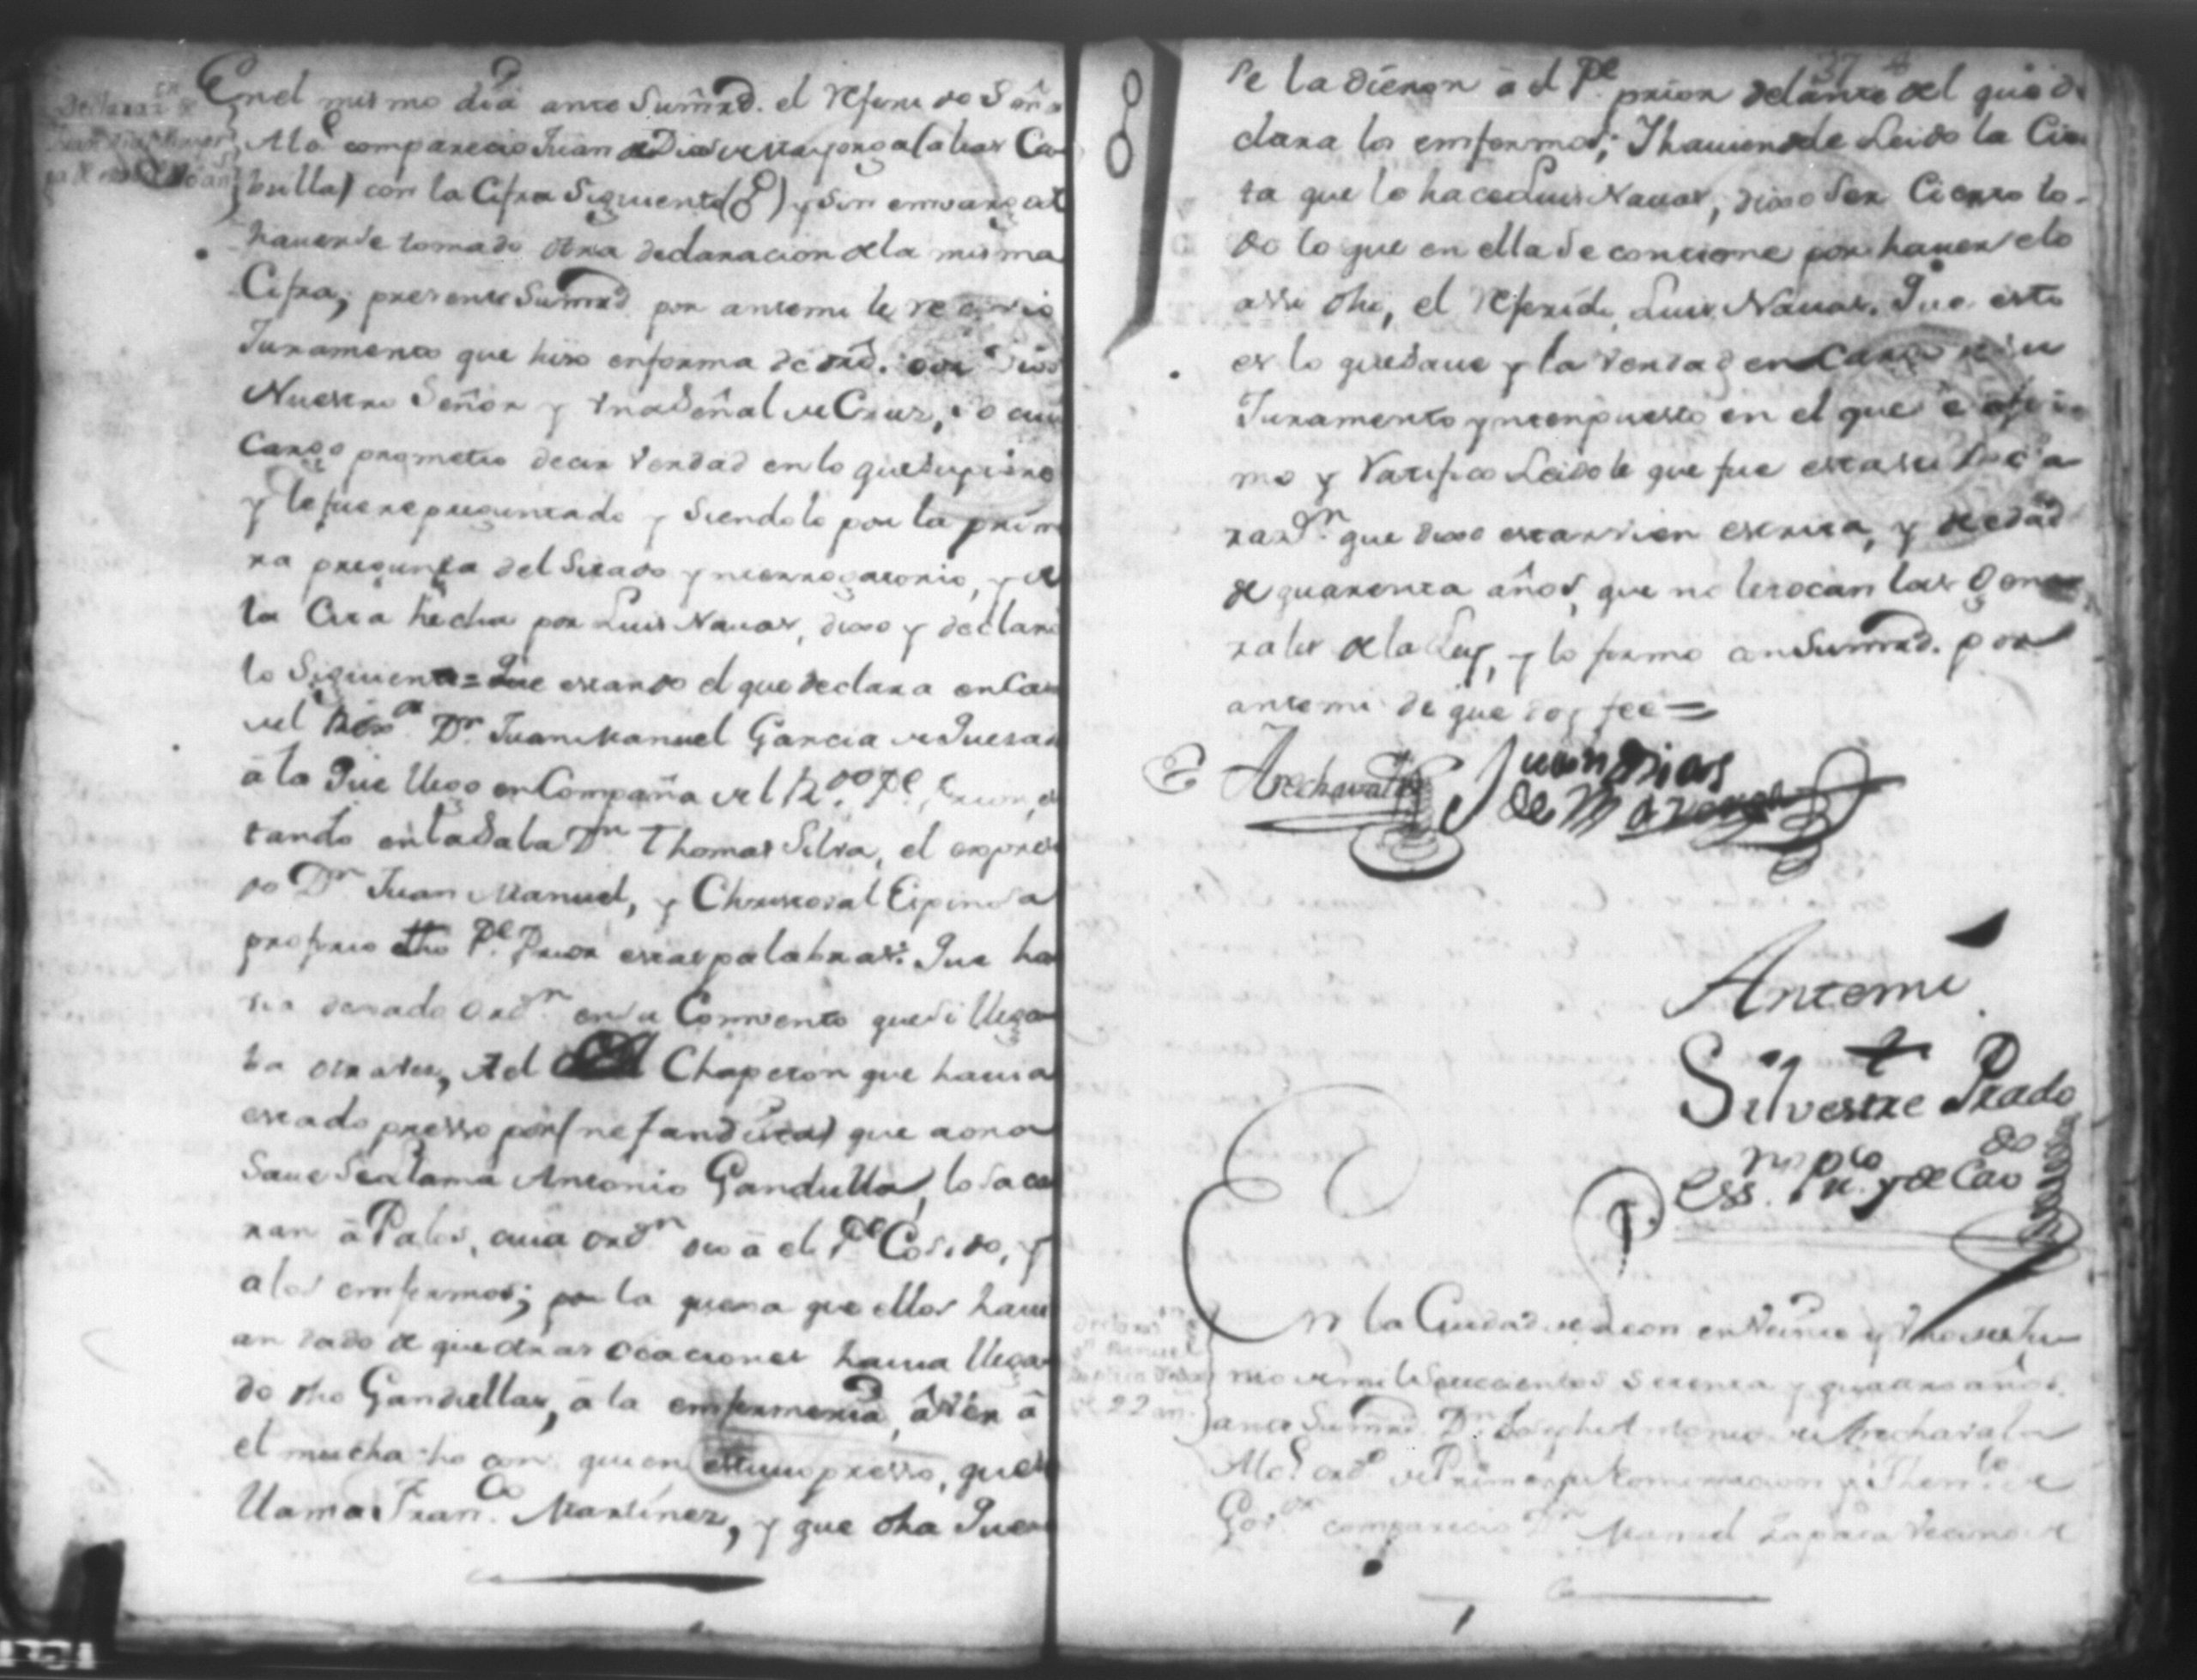 En el mismo dia ante Sumrd. el referido Señor
Alce. comparecio Juan de Dios de Mayorga (alias Ca
bulla) con la Cifra Siguiente (8) y sin embargo de
haverse tomado otra declaracion de la misma
Cifra, presente Sumrd. por antemi le recivio
Juramento que hizo en forma de drô. por Dios
Nuestro Señor y una Señal de Cruz, so cuio
Cargo prometio decir verdad en lo que supiere
y le fuere preguntado y siendolo por la prime
ra pregunta del Citado ynterrogatorio, y de
la Cita hecha por Luis Navas, dixo y declaro
lo Siguiente = Que estando el que declara en Casa
del Dn. Juan Manuel Garcia de Quesada
â la que llego en Compañia del R.do P.e Prior, es
tando en la Sala Dn. Thomas Silva, el expresa
do Dn. Juan Manuel, y Christoval Espinosa
profirio dho P.e Prior estas palabras: Que ha
via dexado ordn. en su Convento que si llega
ba otra ves, Chaperon que havia
estado presso por (nefandista) que aora
save se llama Antonio Gandulla, lo saca
ran â Palos, cuia ordn. dio â el P.e Cosido, y
a los enfermos; por la quexa que ellos havi
an dado de que otras ocaciones havia llega
do dho Gandullas, â la enfermeria, â ver â
el muchacho con quien estuvo presso, que se
llama Fran.co Martinez, y que dha Quexa
37
se la dieron â el P.e prior delante del que de
clara los enfermos; Y haviendole Leido la Ci
ta que le hace Luis Navas, dixo ser Cierto to-
do lo que en ella se contiene por haverselo
assi dho, el referido Luis Navas. Que esto
es lo que save y la verdad en Cargo de su
Juramento ynterpuesto en el que se afir
mo y ratifico Leidole que fue esta su Decla
razn. que dixo estar vien escrita, y de edad
de quarenta años, que no le tocan las Gene
rales de la Ley, y lo firmo con Sumrd. por
antemi de que doy fee =
Arechavala Juan Dios
de Mayorga
Antemi
Silvestre Prado
ess. pu.co y de Cavdo
En la Ciudad de Leon en veinte y nueve Ju
nio de mil Setecientos Setenta y quatro años.
ante Sumrd. Dn. Antonio de Arechavala
Alce. ordo. de Primera Nominacion y Thente. de
Gov.or comparecio Dn. Manuel Zapata vecino de